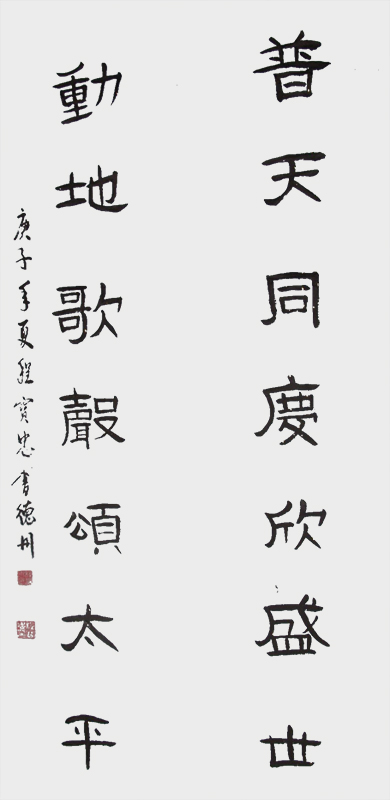 普天同慶欣盛世
動地歌聲頌太平
庚子年夏程寶忠書德州